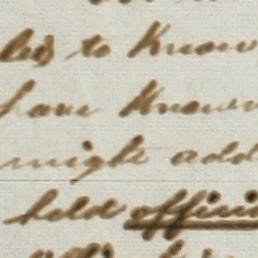 to know
have known
might add
held offici